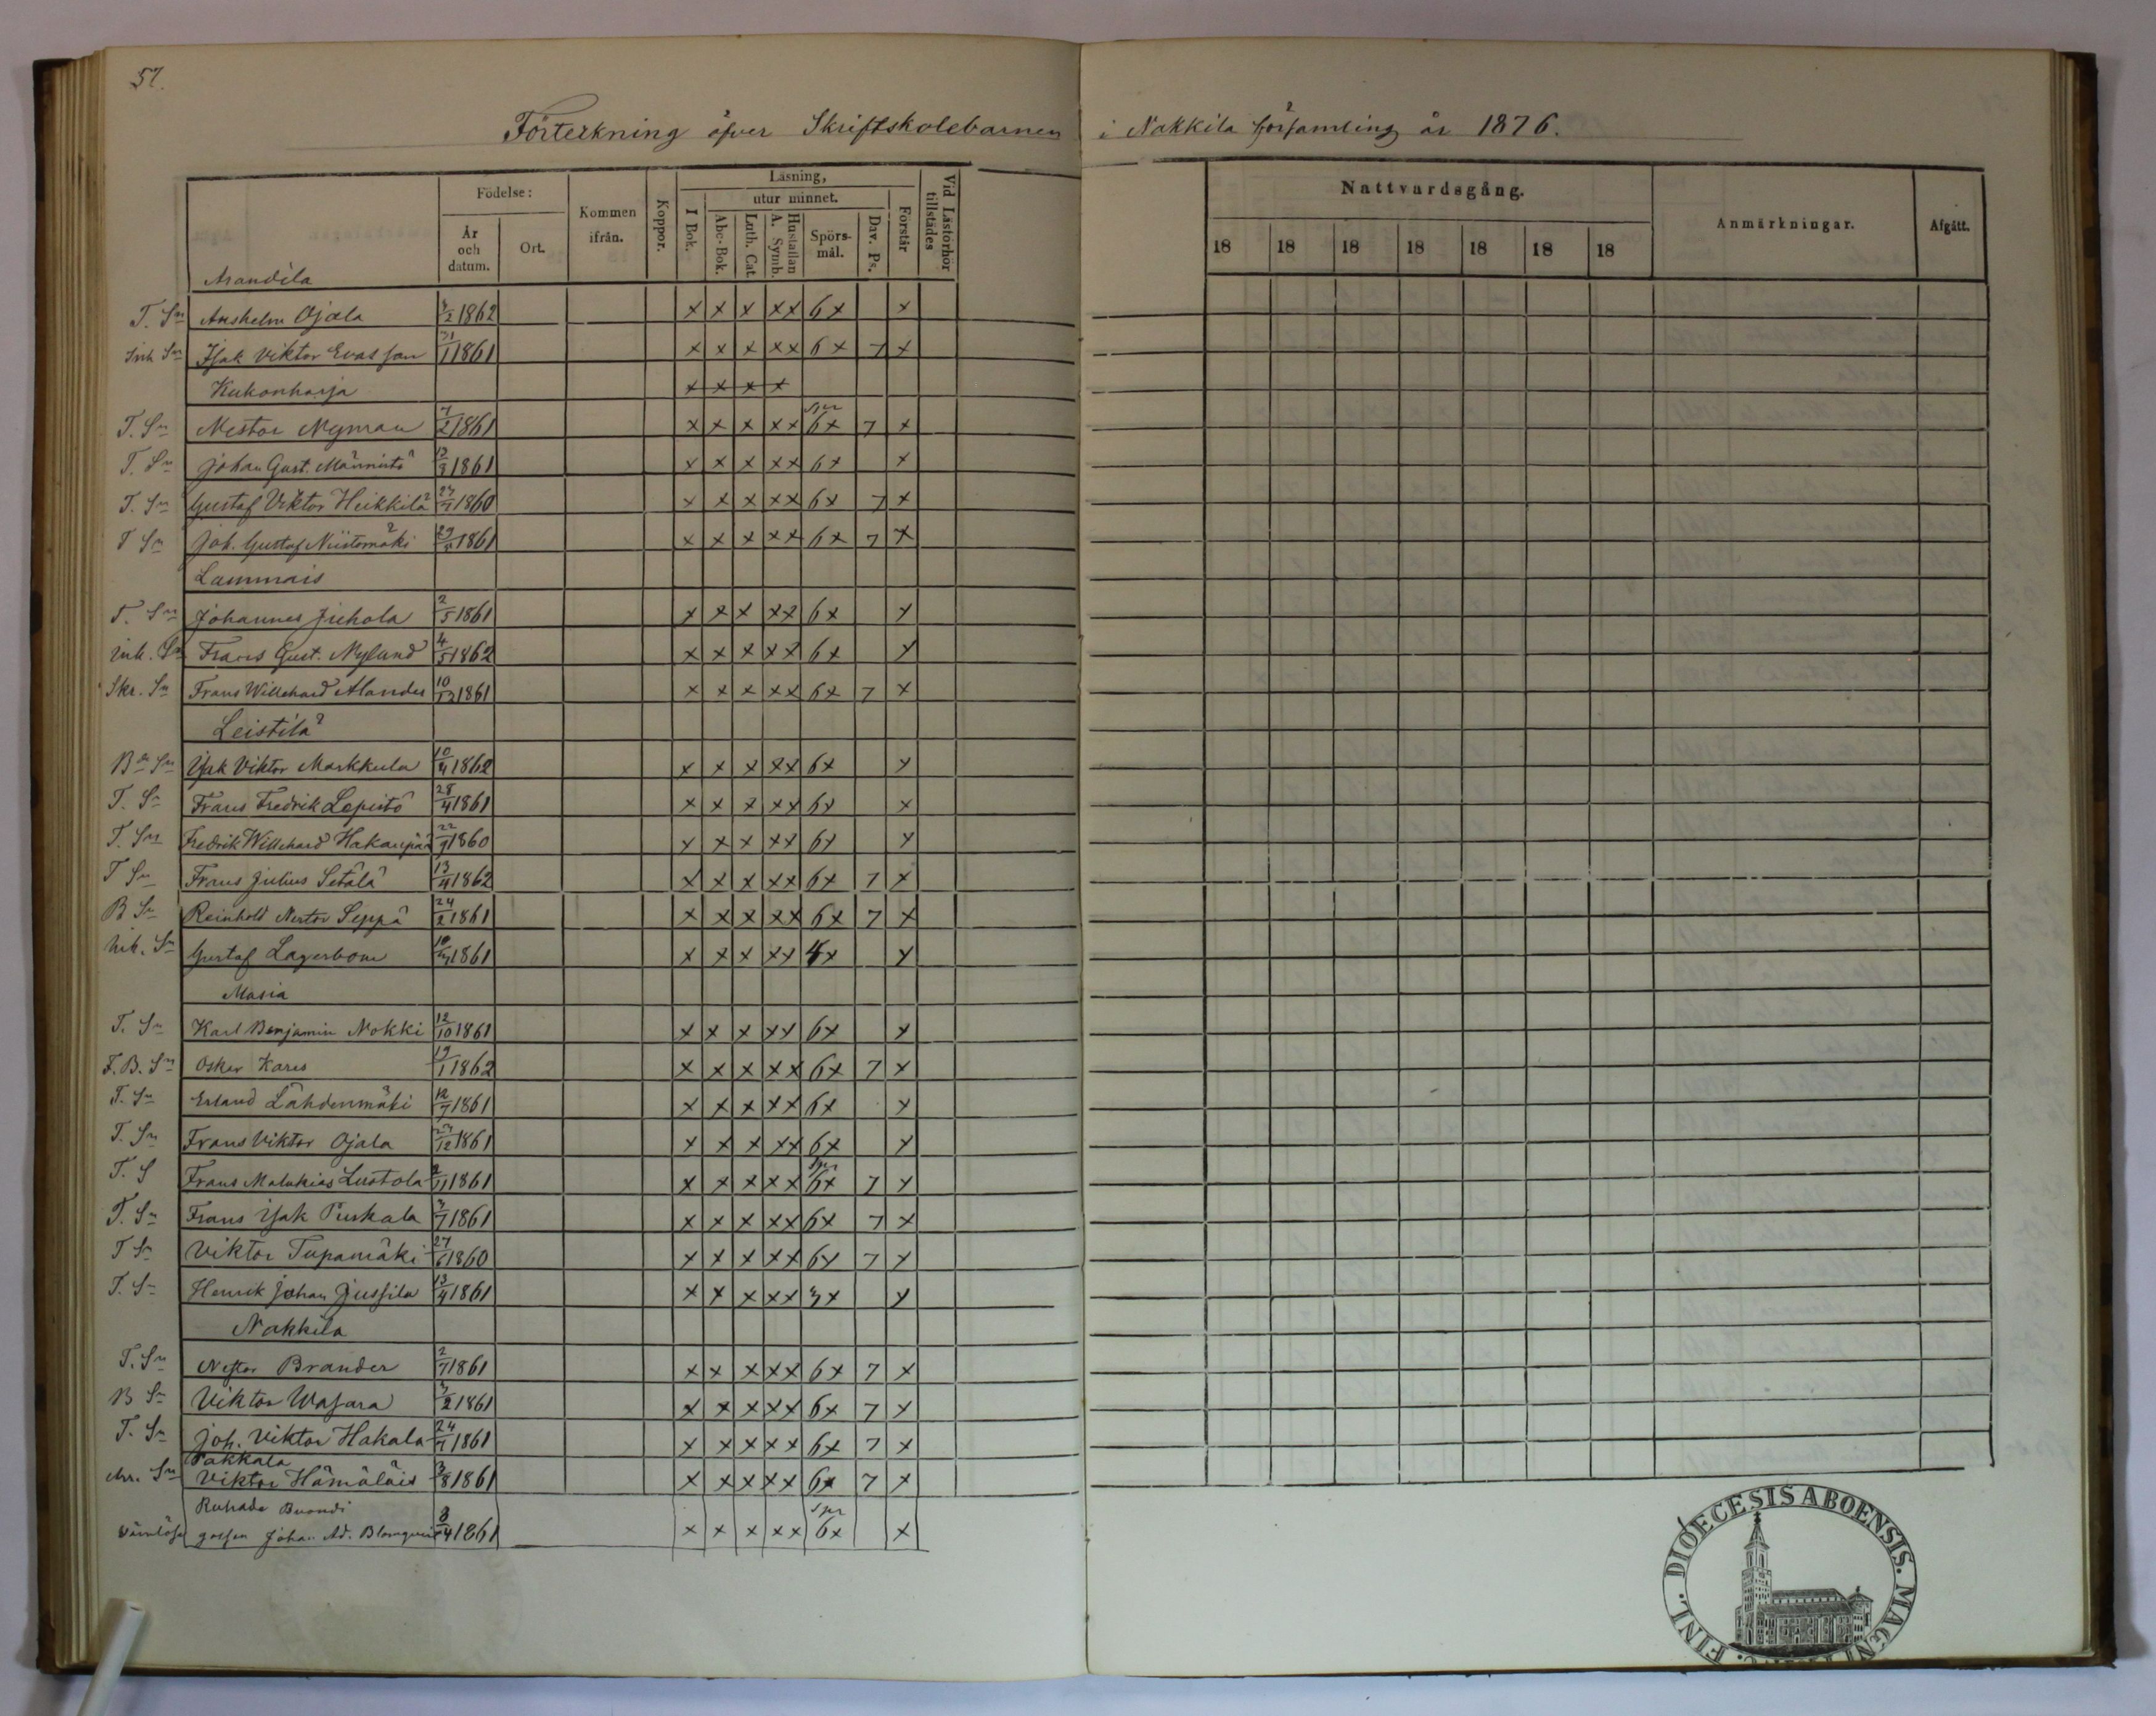 57.
Förteckning öfver Skriftskolebarnen i Nakkila församling år 1876.
Födelse:
År och datum.
Ort.
Kommen ifrån.
Koppor.
Läsning,
utur minnet.
I Bok.
Abc-Bok.
Luth. Cat.
Hustaflan A. Symb.
Spörs-mål.
Dav. Ps.
Förstår
Vid Läsförhör tillstädes
Nattvardsgång.
18 18 18 18 18 18 18
Anmärkningar.
Afgått.
Arandila
T. Sn Anshelm Ojala 1862 x x x x x 6x x
Inh Sn Isak Viktor Evasson 31/1 1861 x x x x x 6 x 7 x
Kukonharja x x x x
T. Sn Nestor Nyman 7/2 1861 x x x x x 6x 7 x
T. Sn Johan Gust. Männistö 13/3 1861 x x x x x 6x x
T. Sn Gustaf Viktor Heikkilä 1860 x x x x x 6x 7 x
T Sn Joh. Gustaf Niistomäki 1861 x x x x x 6x 7 x
Lammais
T. Sn Johannes Juhola 2/5 1861 x x x x x 6x x
Inh. Sn Frans Gust. Nylund 4/5 1862 x x x x x 6x x
Skr. Sn Frans Willehard Alander 10/12 1861 x x x x x 6x 7 x
Leistilä
Bde Sn Isak Viktor Markkula 10/4 1862 x x x x x 6x x
T. Sn Frans Fredrik Lepistö 28/4 1861 x x x x x 6x x
T. Sn Fredrik Willehard Hakanpää 22/9 1860 x x x x x 6x x
T Sn Frans Julius Setälä 13/4 1862 x x x x x 6x 7 x
B Sn Reinhold Nestor Seppä 24/2 1861 x x x x x 6x 7 x
Inh. Sn Gustaf Lagerbom 1861 x x x x x 4x x
Masia
T. Sn Karl Benjamin Nokki 12/10 1861 x x x x x 6x x
F. B. Sn Oskar Kares 19/1 1862 x x x x x 6x 7 x
T. Sn Erland Lähdenmäki 12/7 1861 x x x x x 6x x
T. Sn Frans Viktor Ojala 23/12 1861 x x x x x 6x x
T. S Frans Malakias Luotola 1861 x x x x x 6x 7 x
T. Sn Frans Isak Puskala 3/7 1861 x x x x x 6x 7 x
T Sn Viktor Tupamäki 27/6 1860 x x x x x 6x 7 x
T. Sn Henrik Johan Jussila 13/4 1861 x x x x x 3x x
Nakkila
T. Sn Nestor Brander 2/7 1861 x x x x x 6x 7 x
B Sn Viktor Wasara 3/2 1861 x x x x x 6x 7 x
T. Sn Joh. Viktor Hakala 24/7 1861 x x x x x 6x 7 x
Pakkala
Sn Viktor Hämäläis 3/8 1861 x x x x x 6x 7 x
Ruhade
gossen Johan Ad. Blomqvist 8/4 1861 x x x x x 6x x
FINL. DIOECESIS ABOENSIS. MAGNI